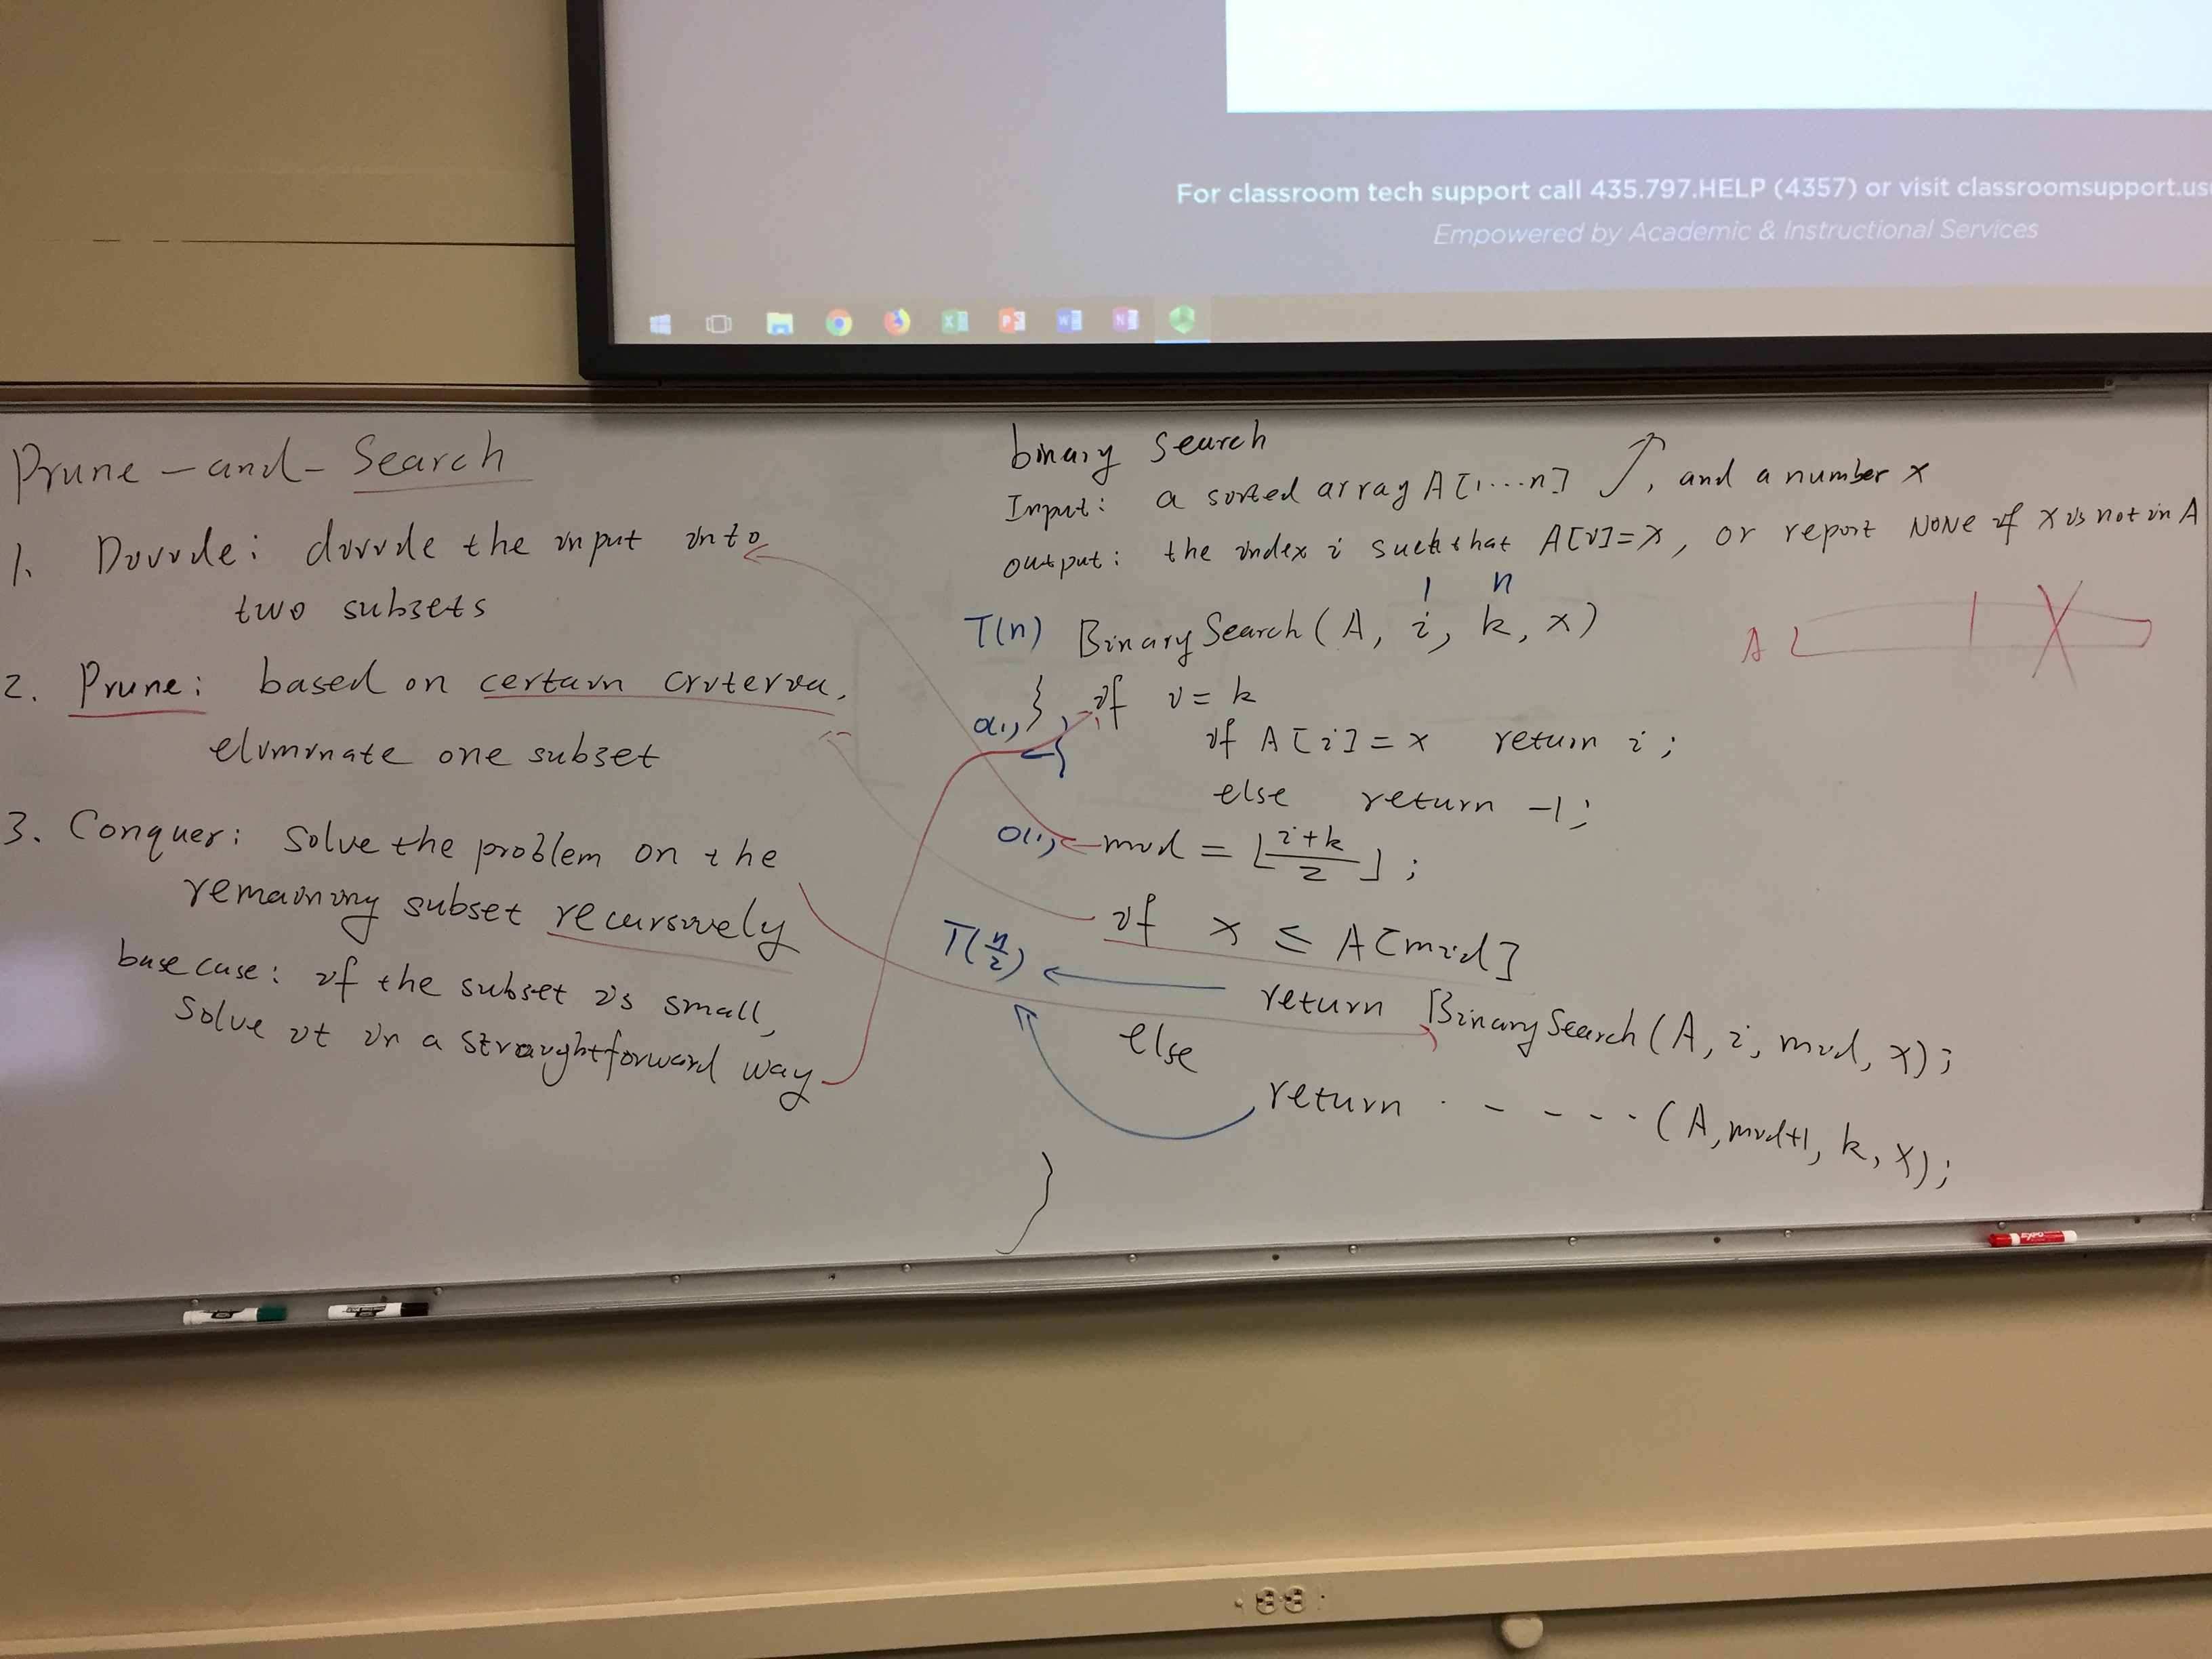 For classroom tech support call 435.797.HELP (4357) or visit classroomsupport.us
Empowered by Academic & Instructional Services
Prune-and-Search
1. Divide: divide the input into
two subsets
2. Prune: based on certain criteria,
eliminate one subset
3. Conquer: solve the problem on the
remaining subset recursively
base case: if the subset is small,
Solve it in a straightforward way
binary search
Input: a sorted array A[1...n] ↗, and a number x
output: the index i such that A[i]=x, or report NONE if x is not in A
1 n
T(n) BinarySearch(A, i, k, x)
O(1) { if i = k
if A[i] = x return i;
else return -1;
O(1) mid = ⌊(i+k)/2⌋;
if x ≤ A[mid]
T(n/2) ← return BinarySearch(A, i, mid, x);
else
return - - - - - (A, mid+1, k, x);
}
A
EXPO